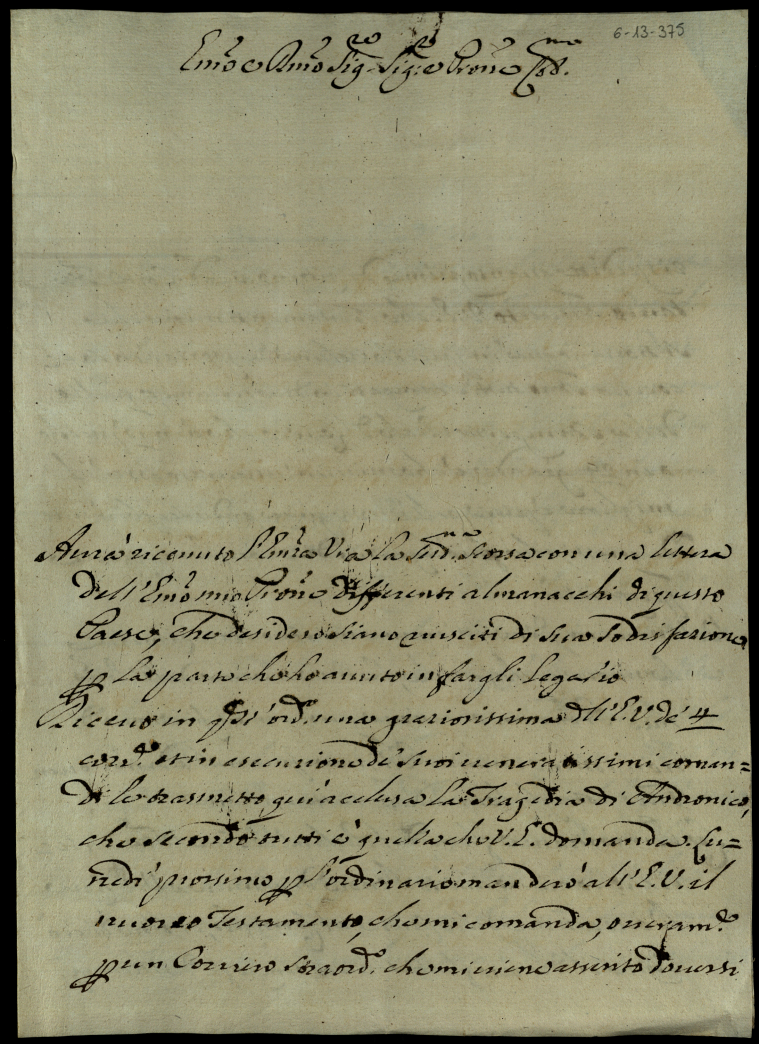 6-13-375
Em̃o e Rm̃o Sig.re Sig.re e Pron̄e Col.mo
Aurà riceuuto l'Em̃za V.ra la Sud.na scorsa con una lettera
dell'Em̃o mio Pron̄e differenti almanacchi di questo
Paese, che desidero siano riusciti di sua sodisfazione
p la parte che ho auuto in fargli legare
Riceuo in qst' ord.o una graziosissima dll'E.V. de' 4
corr.e et in esecuzione de' suoi veneratissimi coman=
di le trasmetto quì acclusa la Tragedia di Andronico,
che secondo tutti è quella che V.E. domanda. Lu=
nedì prossimo p l'ordinario manderò all'E.V. il
nuovo Testamento, che mi comanda, oueram.e
p un Corriero straord.o che mi viene asserito douersi